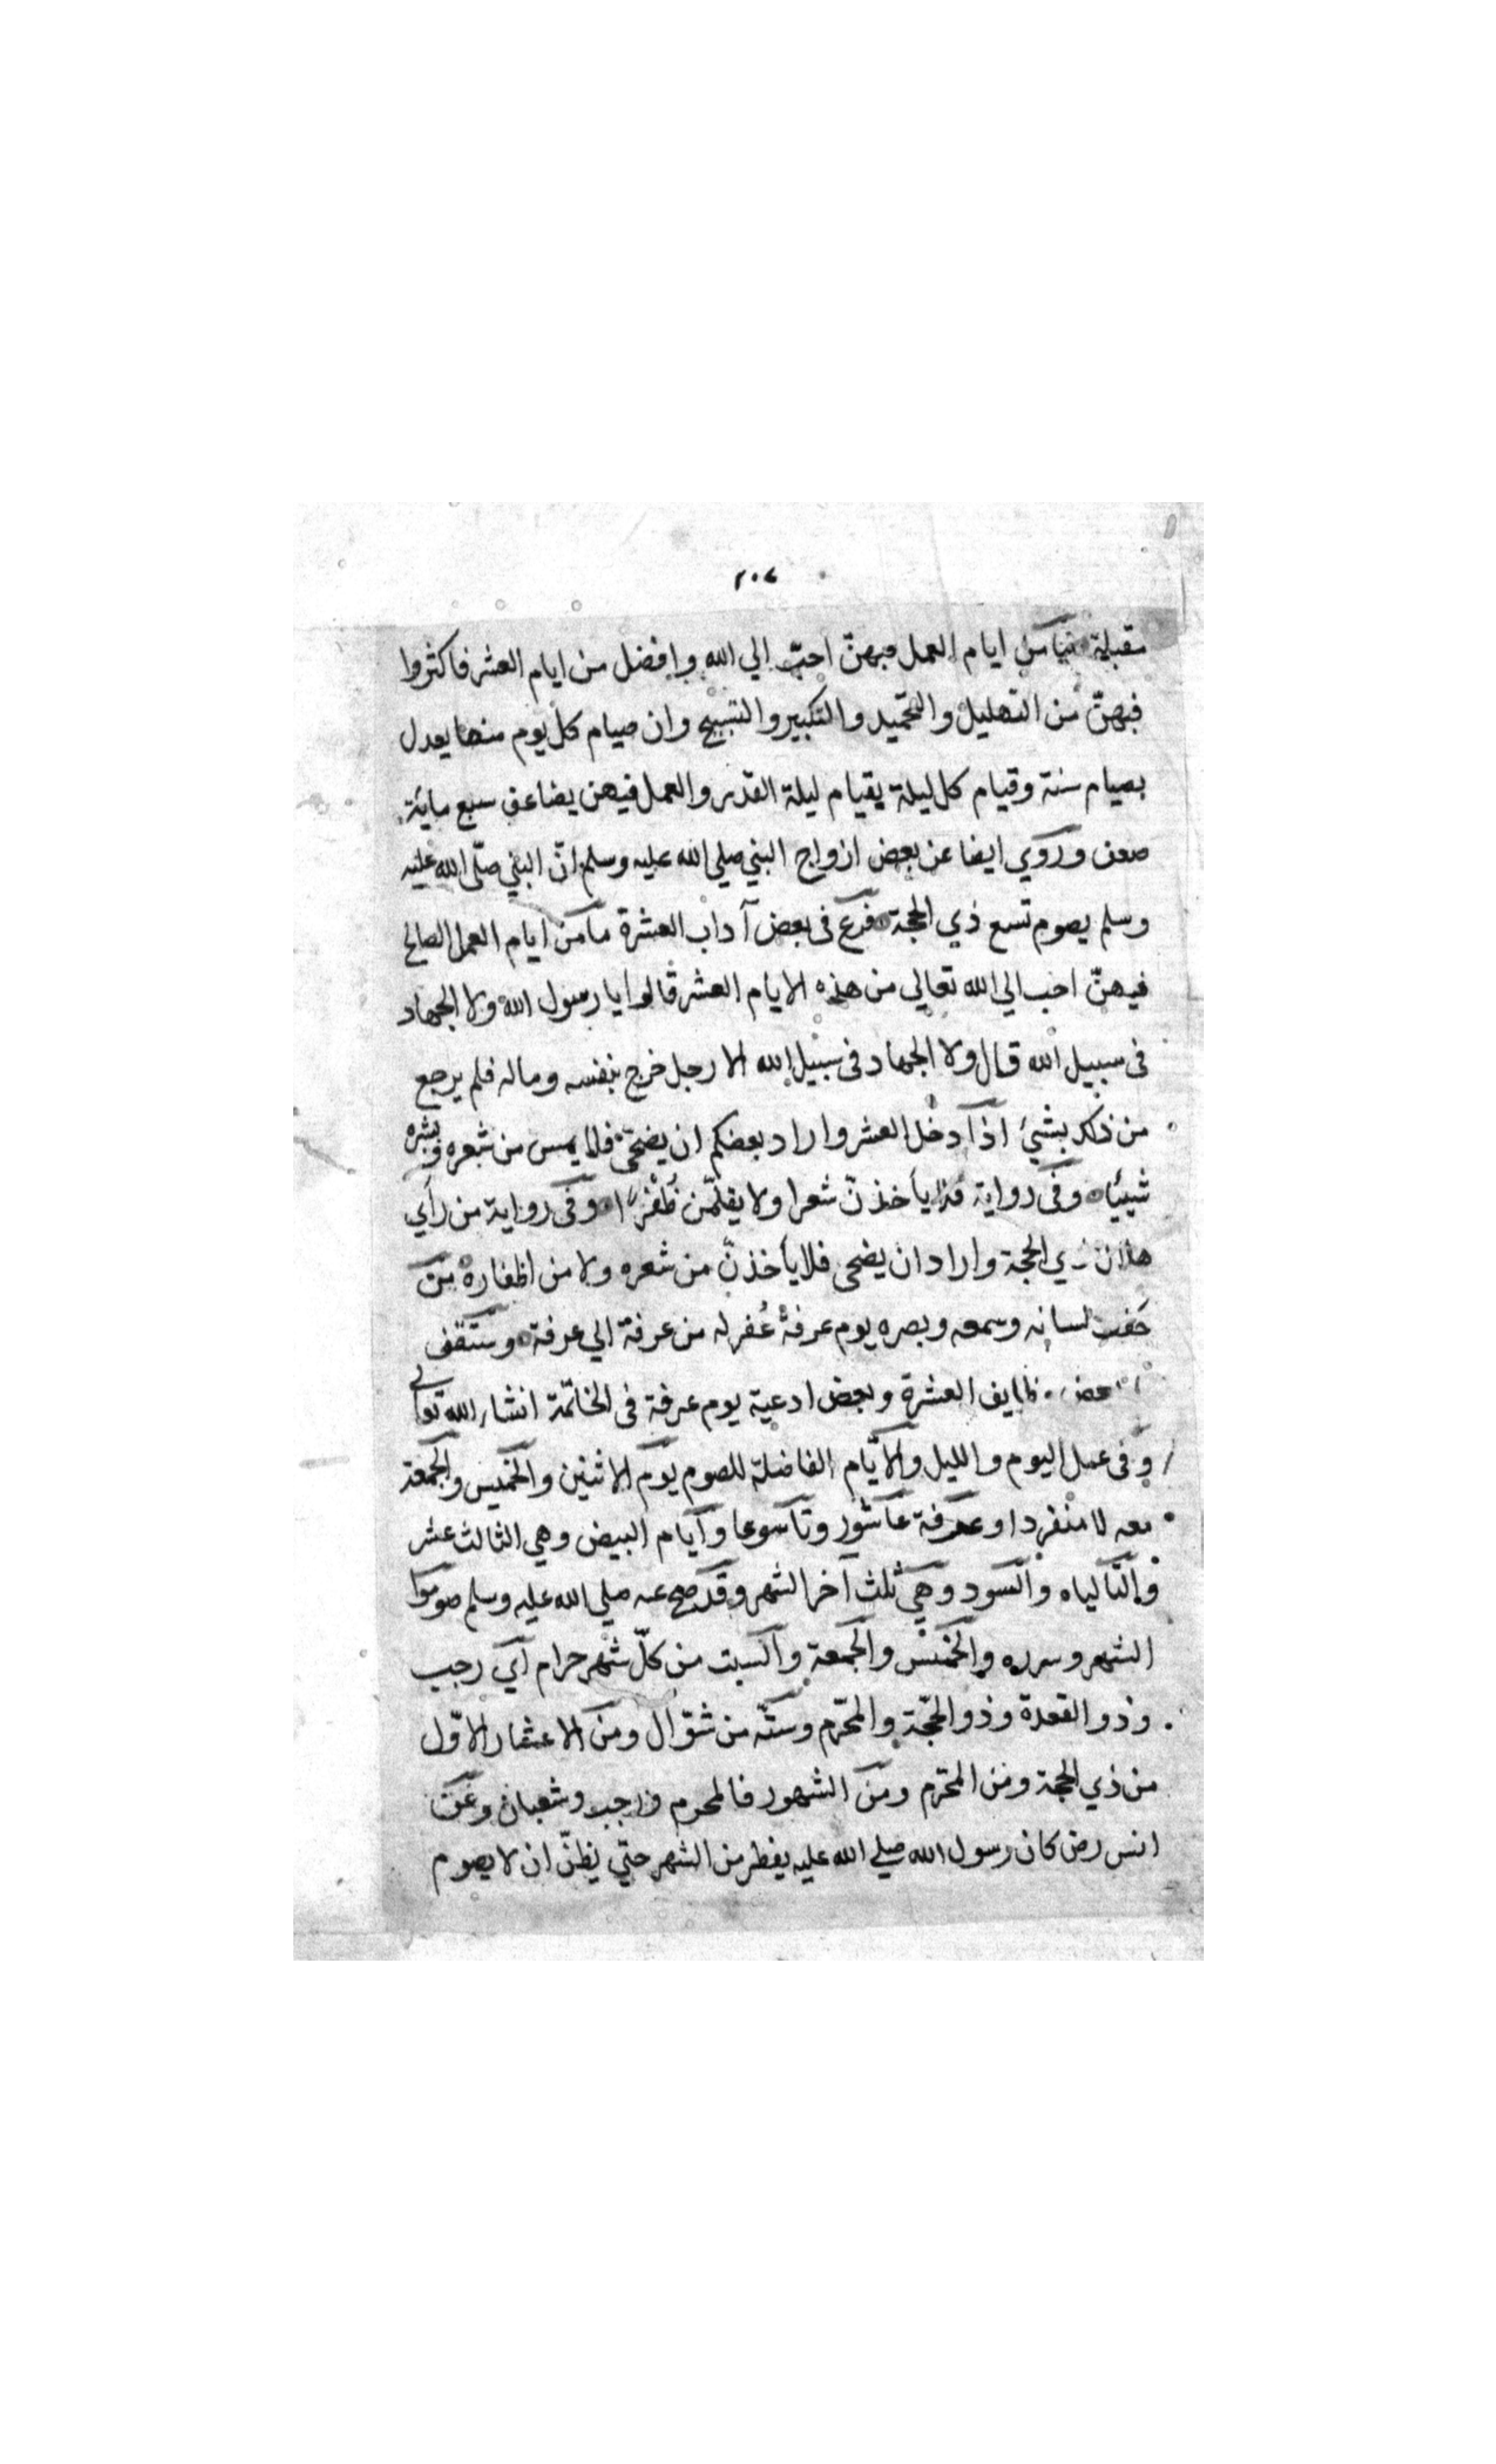 ٢٠٧
مقبلة ما من ايام العمل فيهنّ احبّ الي الله وافضل من ايام العشر فاكثروا
فيهنّ من التهليل والتحميد والتكبير والتسبيح وان صيام كل يوم منها يعدل
بصيام سنة وقيام كل ليلة بقيام ليلة القدر والعمل فيهن يضاعف سبع ماية
ضعف وروي ايضا عن بعض ازواج النبي صلي الله عليه وسلم انّ النبي صلّي الله عليه
وسلم يصوم تسع ذي الحجة فرع فى بعض آداب العشرة ما من ايام العمل الصالح
فيهنّ احب الي الله تعالي من هذه الايام العشر قالوا يا رسول الله ولا الجهاد
فى سبيل الله قال ولا الجهاد فى سبيل الله الا رجل خرج بنفسه وماله فلم يرجع
من ذلك بشيئ اذا دخل العشر واراد بعضكم ان يضحّى فلا يمس من شعره وبشره
شيئا وفى رواية فلا يأخذنّ شعرا ولا يقلمّن ظُفْرا وفى رواية من رأي
هلال ذي الحجة واراد ان يضحى فلا يأخذنّ من شعره ولا من اظفاره من
حفظ لسانه وسمعه وبصره يوم عرفة غُفر له من عرفة الي عرفة وستقف
بعض وظايف العشرة وبعض ادعية يوم عرفة فى الخاتمة انشاء الله تعالي
وفى عمل اليوم والليل والايّام الفاضلة للصوم يوم الاثنين والخميس والجمعة
معه لا منفردا وعرفة عاشور وتاسوعا وايام البيض وهي الثالث عشر
وتالياه والسود وهي ثلث آخر الشهر وقد صح عنه صلي الله عليه وسلم صوموا
الشهر وسرره والخميس والجمعة والسبت من كلّ شهر حرام اي رجب
وذو القعدة وذو الحجّة والمحرّم وستّه من شوّال ومن الاعشار الاوّل
من ذي الحجة ومن المحرّم ومن الشهور فالمحرم ورجب وشعبان وعن
انس رض كان رسول الله صلي الله عليه يفطر من الشهر حتّي يظنّ ان لا يصوم